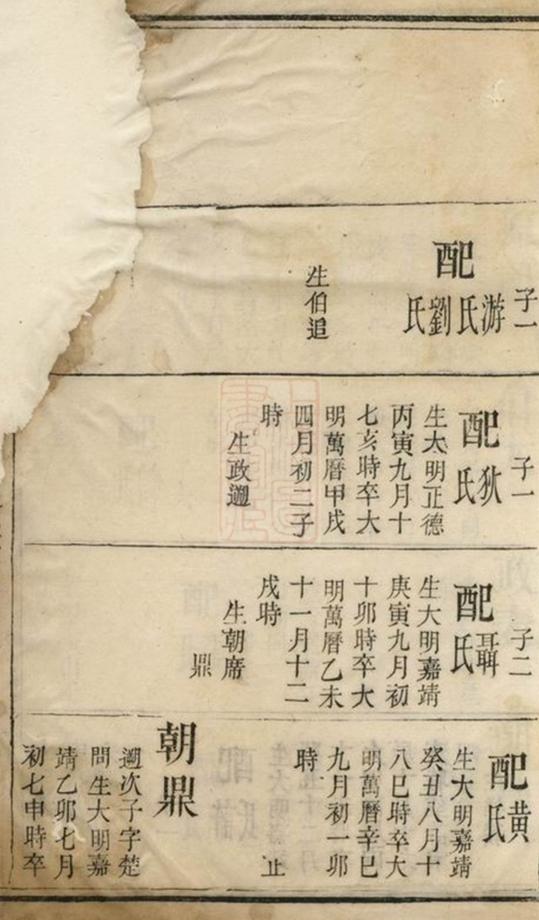 子一
配游氏劉氏
生伯追
子一
配狄氏
生大明正德
丙寅九月十
七亥時卒大
明萬曆甲戌
四月初二子
時
生政遡
子二
配聶氏
生大明嘉靖
庚寅九月初
十卯時卒大
明萬曆乙未
十一月十二
戌時
生朝席
鼎
配黃氏
生大明嘉靖
癸丑八月十
八巳時卒大
明萬曆辛巳
九月初一卯
時 止
朝鼎
遡次子字楚
問生大明嘉
靖乙卯七月
初七申時卒